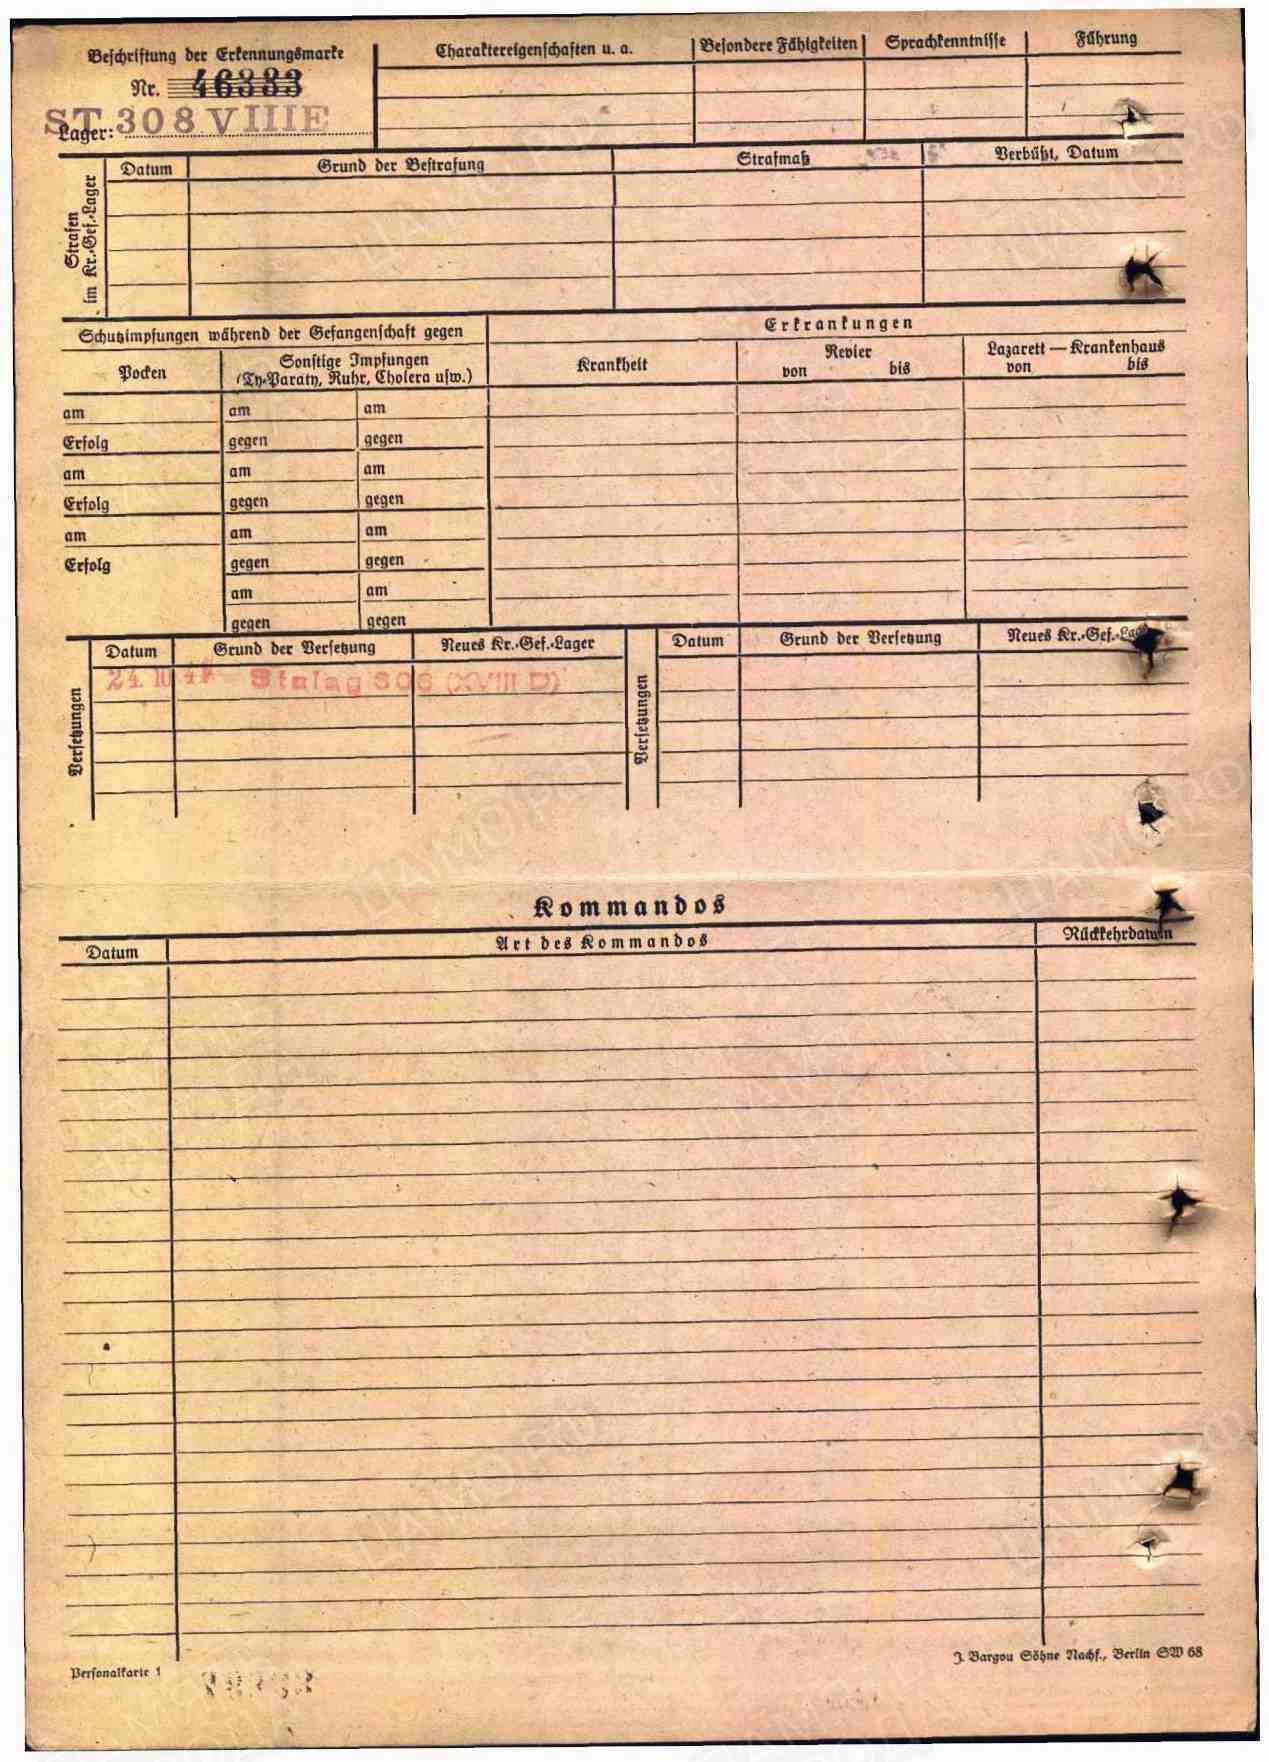 Beschriftung der Erkennungsmarke
Nr. 46383
Lager: ST 308 VIIIE
Charaktereigenschaften u. a.
Besondere Fähigkeiten
Sprachkenntnisse
Führung
Strafen im Kr.-Gef.-Lager
Datum
Grund der Bestrafung
Strafmaß
Verbüßt, Datum
Schutzimpfungen während der Gefangenschaft gegen
Erkrankungen
Pocken
Sonstige Impfungen
(Ty-Paraty, Ruhr, Cholera usw.)
Krankheit
Revier
von bis
Lazarett — Krankenhaus
von bis
am am am
Erfolg gegen gegen
am am am
Erfolg gegen gegen
am am am
Erfolg gegen gegen
am am
gegen gegen
Versetzungen
Datum
Grund der Versetzung
Neues Kr.-Gef.-Lager
24. 10. 41 Stalag 306 (XVIII D)
Versetzungen
Datum
Grund der Versetzung
Neues Kr.-Gef.-Lager
Kommandos
Datum
Art des Kommandos
Rückkehrdatum
Personalkarte 1
J. Bargou Söhne Nachf., Berlin SW 68